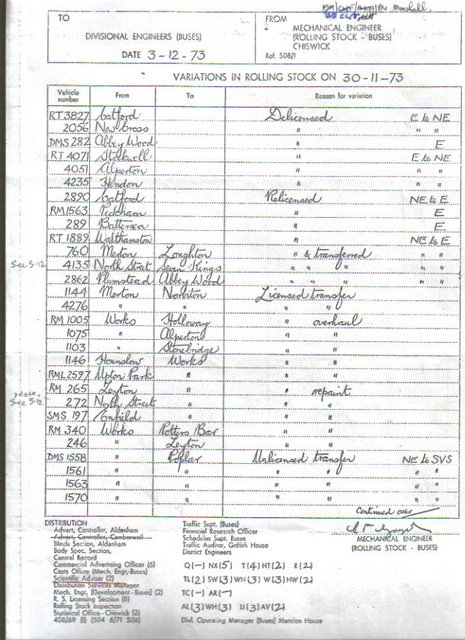 TO
DIVISIONAL ENGINEERS (BUSES)
DATE 3-12-73
FROM
MECHANICAL ENGINEER
(ROLLING STOCK - BUSES)
CHISWICK
Ref. 508/1
VARIATIONS IN ROLLING STOCK ON 30-11-73
Vehicle number From To Reason for variation
RT 3827 Catford Delicensed E to NE
2056 New Cross " " "
DMS 282 Abbey Wood " E
RT 4071 Stockwell " E to NE
4051 Alperton " " "
4235 Hendon " " "
2890 Catford Relicensed NE to E
RM 1563 Peckham " E
289 Battersea " E
RT 1889 Walthamstow " NE to E
760 Merton Loughton " & transferred " "
See 5-12 4135 North Street Seven Kings " " " " "
2862 Plumstead Abbey Wood " " " " "
1144 Merton Norbiton Licensed transfer
4276 " " " "
RM 1005 Works Holloway " overhaul
1075 " Alperton " "
1103 " Stonebridge " "
1146 Hounslow Works " "
RML 2597 Upton Park " " "
RM 265 Leyton " " repaint
See 5-12 272 North Street " " "
SMS 197 Enfield " " "
RM 340 Works Potters Bar " "
246 " Leyton " "
DMS 1558 " Poplar Unlicensed transfer NE to SVS
1561 " " " " " "
1563 " " " " " "
1570 " " " " " "
Continued over
MECHANICAL ENGINEER
(ROLLING STOCK - BUSES)
DISTRIBUTION
Advert. Controller, Aldenham
Advert. Controller, Camberwell
Blinds Section, Aldenham
Body Spec. Section,
Central Record
Commercial Advertising Officer (6)
Costs Office (Mech. Engr. Buses)
Scientific Adviser (2)
Distribution Services Manager
Mech. Engr. (Development - Buses) (2)
R. S. Licensing Section (8)
Rolling Stock Inspection
Statistical Office - Chiswick (2)
408/69 (1) (504 6/71 508)
Traffic Supt. (Buses)
Financial Research Officer
Schedules Supt. Buses
Traffic Auditor, Griffith House
District Engineers
Q(-) NX(5) T(4) HT(2) R(2)
TL(2) SW(3) WN(3) W(3) HW(2)
TC(-) AR(-)
AL(3) WH(3) U(3) AV(2)
Divl. Operating Manager (Buses) Mansion House